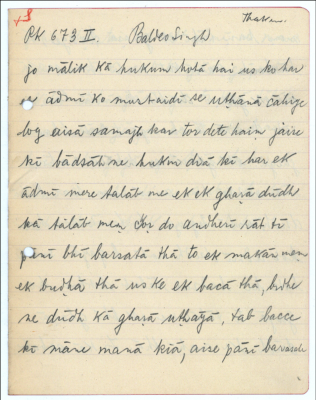 Thaku
PK 673 II. Baldeo Singh
jo mālik kā hukum hotā hai us ko har
ek ādmī ko murtaidī se uṭhānā cāhiye
log aisā samajh kar toṛ dete hain jaise
kī bādsāh ne hukm diā kī har ek
ādmī mere talāb me ek ek ghaṛā dūdh
kā tālāb men ḍoṛ do andherī rāt tī
pānī bhī barsatā thā to ek makān men
ek buḍhā thā us ke ek bacā thā, buḍhe
ne dūdh kā ghaṛā uṭhāyā, tab bacce
kī māne manā kiā, aise pānī barasate